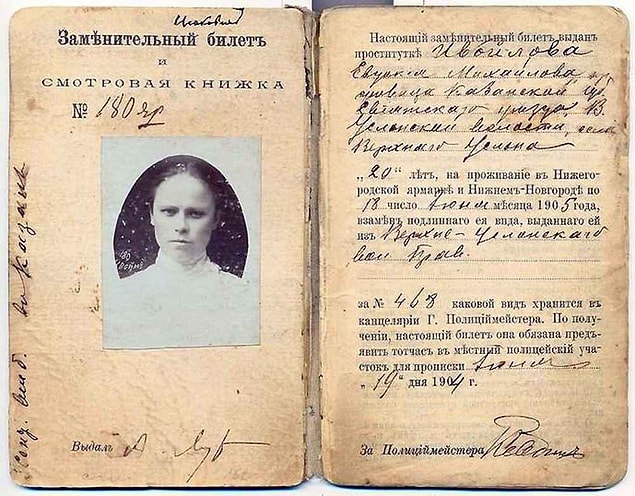 Замѣнительный билетъ
и
СМОТРОВАЯ КНИЖКА
№ 180 яр
Выдалъ
Настоящій замѣнительный билетъ выданъ
проституткѣ Ивойлова
Евдокія Михайлова кр
Казанской гу
Свіяжскаго уѣзда, В.
Услонской волости, села
Верхняго Услона
„20“ лѣтъ, на проживаніе въ Нижего-
родской ярмаркѣ и Нижнемъ-Новгородѣ по
18 число Іюня мѣсяца 1905 года,
взамѣнъ подлиннаго ея вида, выданнаго ей
изъ Верхне-Услонскаго
вол Прав.
за № 468 каковой видъ хранится въ
канцеляріи Г. Полиціймейстера. По полу-
ченіи, настоящій билетъ она обязана предъ-
явить тотчасъ въ мѣстный полицейскій уча-
стокъ для прописки Іюня
„19“ дня 1904 г.
За Полиціймейстера